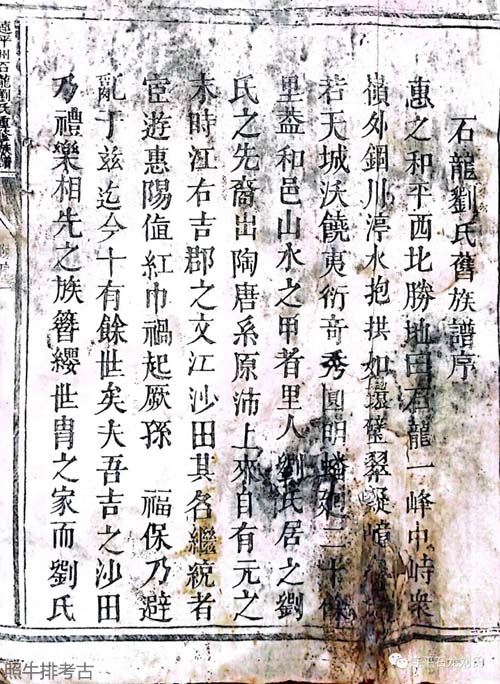 石龍劉氏舊族譜序
惠之和平西北勝地曰石龍一峰中峙衆
嶺外鋼川渟水抱拱如環璧翠凝嶂
若天城沃饒夷衍奇秀圓明蟠廻二十
里蓋和邑山水之甲者里人劉氏居之劉
氏之先裔出陶唐系原沛上來自有元之
末時江右吉郡之文江沙田其名繼統者
宦遊惠陽值紅巾禍起厥孫 福保乃避
亂丁兹迄今十有餘世矣夫吾吉之沙田
乃禮樂相先之族簪纓世冑之家而劉氏
連平州石龍劉氏重修族譜
照牛排考古